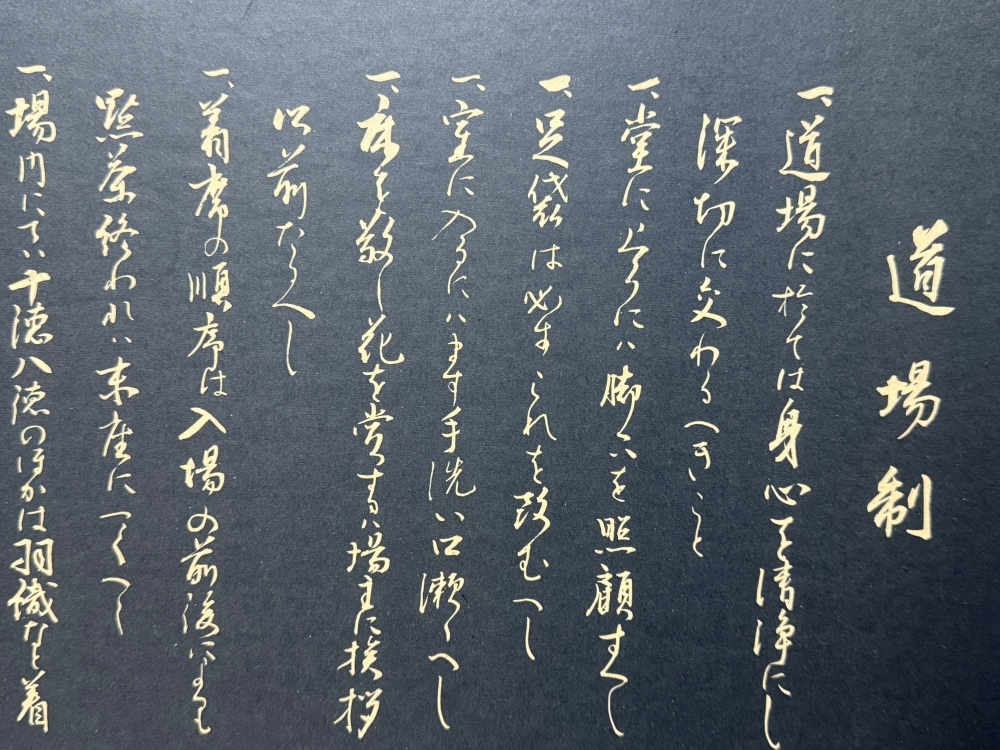 道場制
一、道場に於ては身心を清浄にし
深切に交わるへきこと
一、堂に上るには脚下を照顧すへし
一、足袋は必すこれを改むへし
一、室に入るにはます手洗い口漱くへし
一、床を敬し花を賞するは場主に挨拶
以前なるへし
一、着席の順序は入場の前後による
點茶終われは末座につくへし
一、場内にては十徳八徳のほかは羽織など着